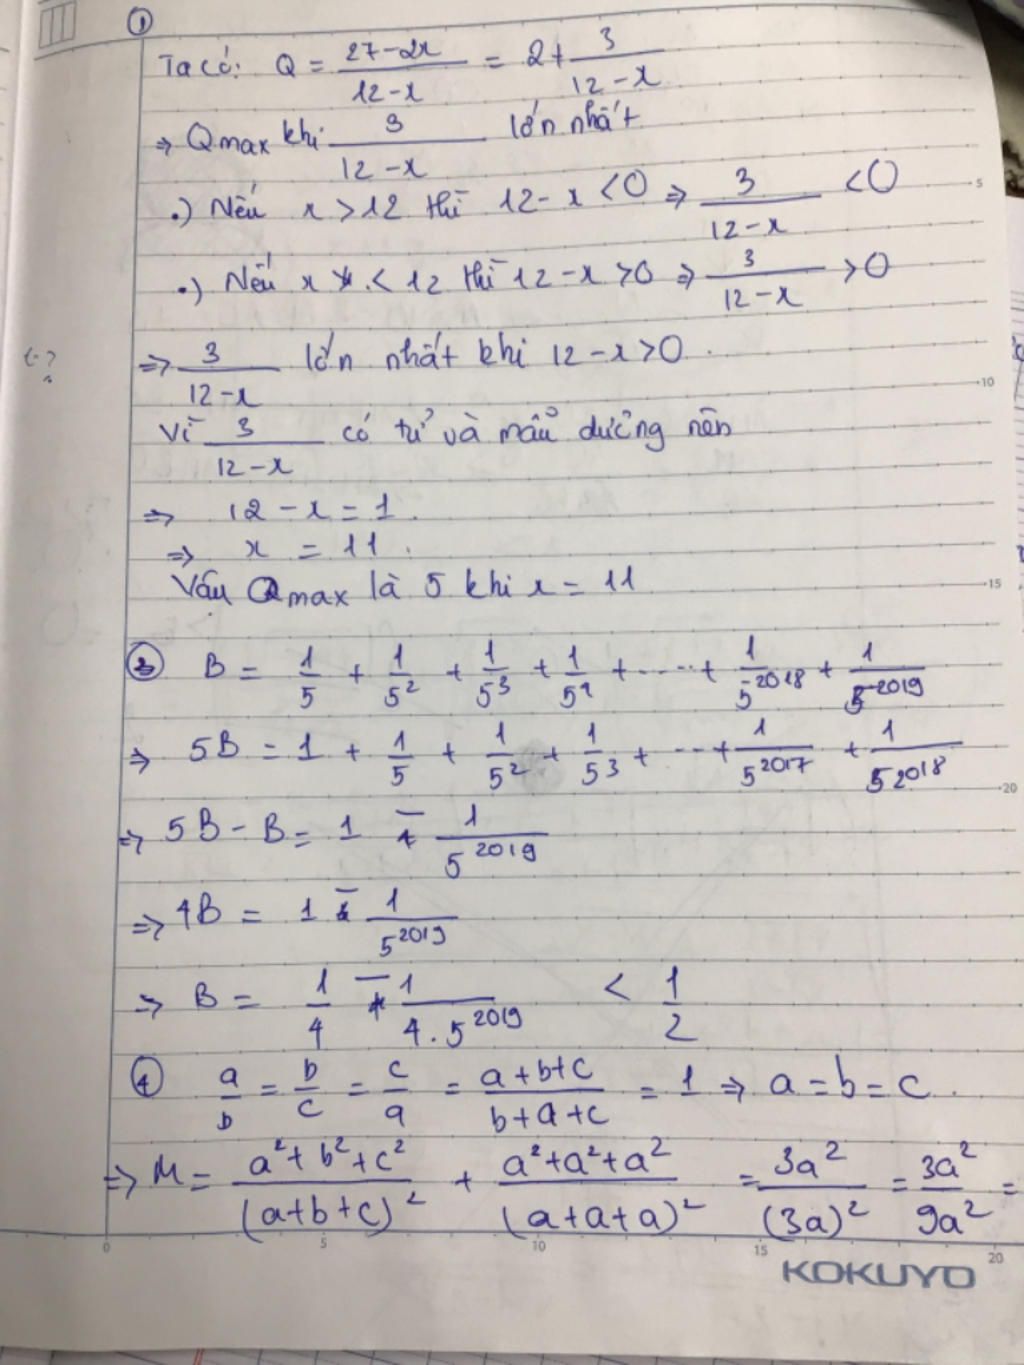 ①
Ta có: Q = 27-2x / 12-x = 2 + 3 / 12-x
⇒ Qmax khi 3 / 12-x lớn nhất
.) Nếu x > 12 thì 12-x < 0 ⇒ 3 / 12-x < 0
.) Nếu x < 12 thì 12-x > 0 ⇒ 3 / 12-x > 0
(-?
⇒ 3 / 12-x lớn nhất khi 12-x > 0.
Vì 3 / 12-x có tử và mẫu dương nên
⇒ 12 - x = 1.
⇒ x = 11.
Vậy Qmax là 5 khi x = 11
③ B = 1/5 + 1/5² + 1/5³ + 1/5⁴ + ..... + 1/5²⁰¹⁸ + 1/5²⁰¹⁹
⇒ 5B = 1 + 1/5 + 1/5² + 1/5³ + ... + 1/5²⁰¹⁷ + 1/5²⁰¹⁸
⇒ 5B - B = 1 - 1/5²⁰¹⁹
⇒ 4B = 1 - 1/5²⁰¹⁹
⇒ B = 1/4 - 1/4.5²⁰¹⁹ < 1/2
④ a/b = b/c = c/a = a+b+c / b+a+c = 1 ⇒ a = b = c.
⇒ M = a²+b²+c² / (a+b+c)² + a²+a²+a² / (a+a+a)² = 3a² / (3a)² = 3a² / 9a² =
KOKUYO